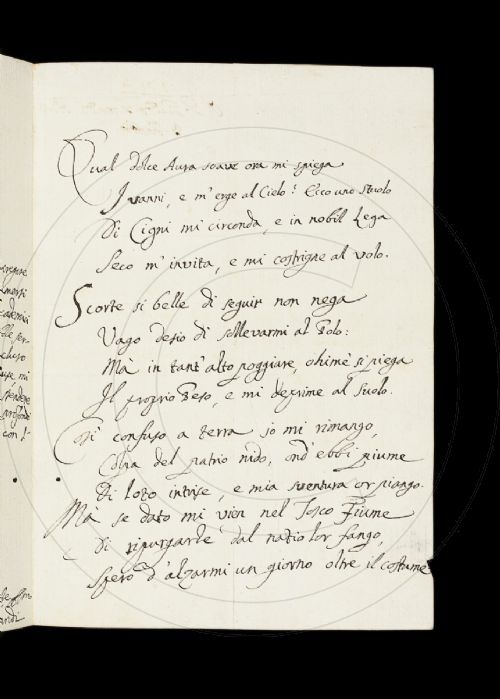 Qual dolce Aura soave ora mi spiega
I vanni, e m'erge al Cielo? Ecco uno stuolo
Di Cigni mi circonda, e in nobil Lega
Seco m'invita, e mi costrigne al volo.
Scorte si belle di seguir non nega
Vago desio di sollevarmi al Polo:
Mà in tant'alto poggiare, ohimè si piega
Il proprio Peso, e mi deprime al suolo.
Così confuso a terra io mi rimango,
Colpa del patrio nido, ond'ebbi piume
Di loto intrise, e mia sventura or piango.
Mà se dato mi vien nel Tosco Fiume
Di ripurgarle dal natio lor fango,
Spero d'alzarmi un giorno oltre il costume